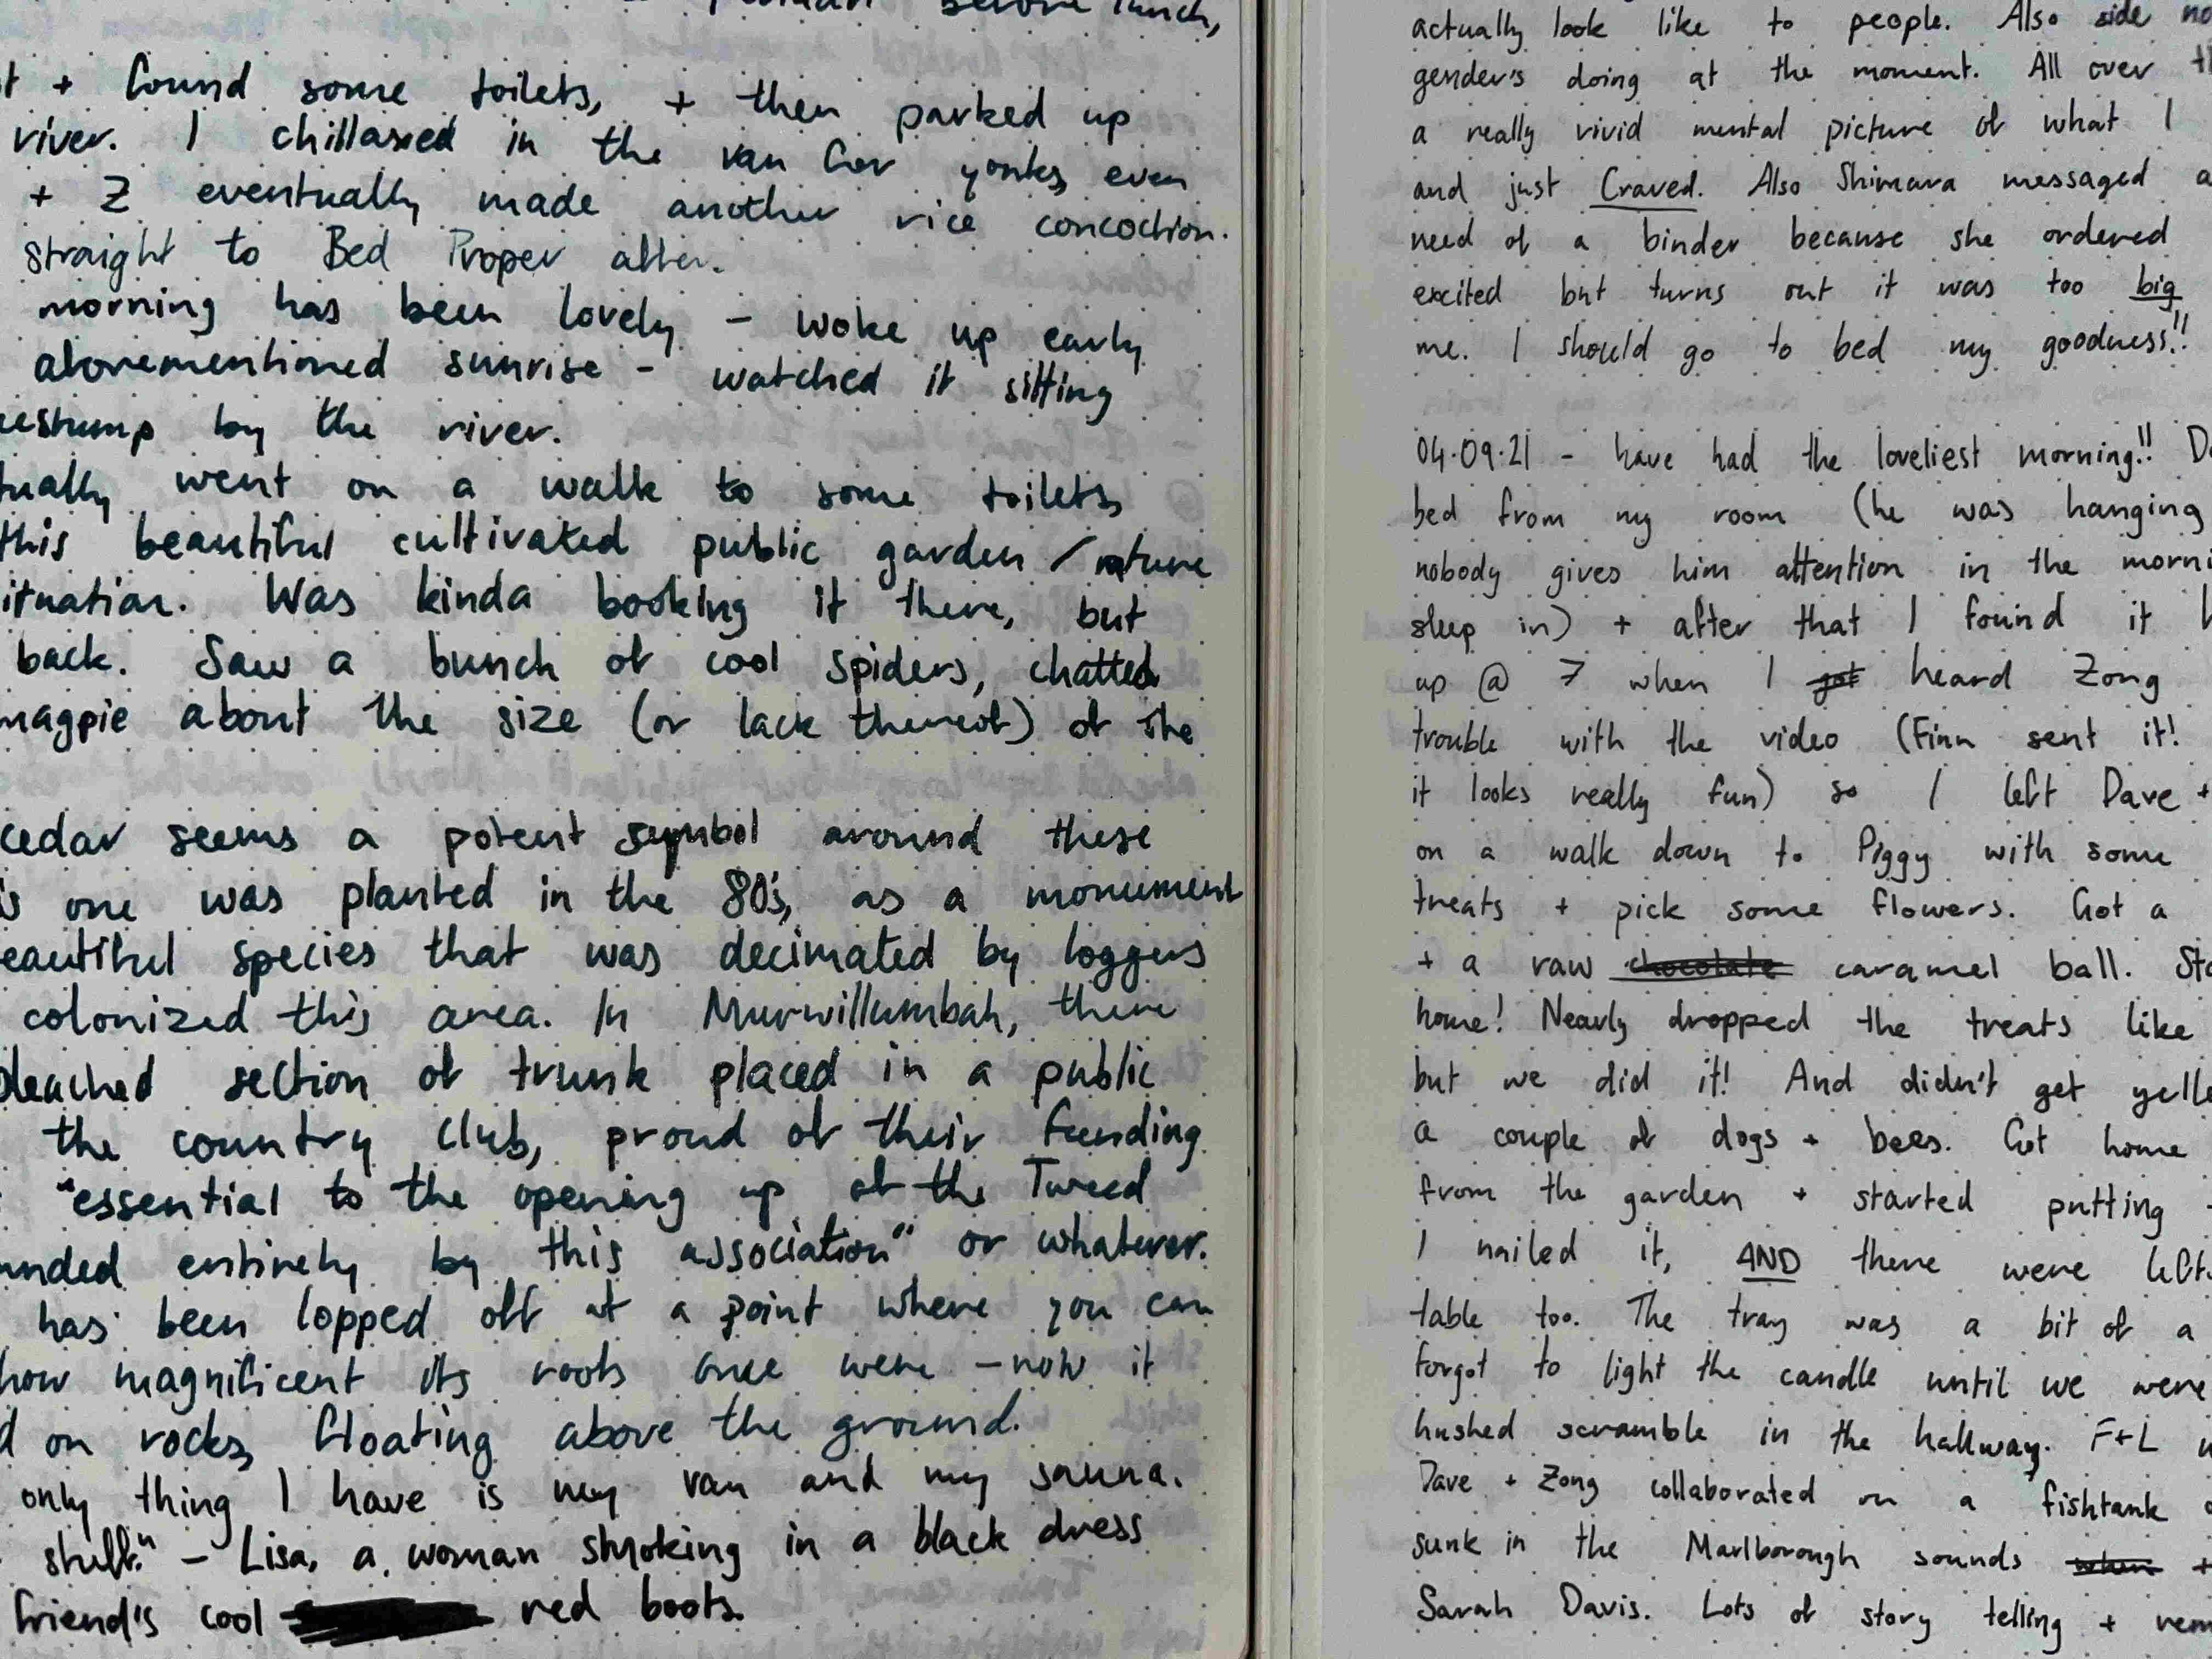 before lunch,
+ found some toilets, + then parked up
river. I chillaxed in the van for yonks, even
+ Z eventually made another rice concoction.
straight to Bed Proper after.
morning has been lovely - woke up early
aforementioned sunrise - watched it sitting
by the river.
went on a walk to some toilets,
this beautiful cultivated public garden / nature
Was kinda booking it there, but
back. Saw a bunch of cool spiders, chatted
magpie about the size (or lack thereof) of the
cedar seems a potent symbol around these
one was planted in the 80's, as a monument
species that was decimated by loggers
colonized this area. In Murwillumbah, there
section of trunk placed in a public
the country club, proud of their funding
"essential to the opening up of the Tweed
entirely by this association" or whatever.
has been lopped off at a point where you can
how magnificent its roots once were - now it
on rocks, floating above the ground.
only thing I have is my van and my sauna.
stuff." - Lisa, a woman smoking in a black dress
friend's cool red boots.
actually look like to people. Also side
gender's doing at the moment. All over
a really vivid mental picture of what I
and just Craved. Also Shimara messaged
need of a binder because she ordered
excited but turns out it was too big
me. I should go to bed my goodness!!
04.09.21 - have had the loveliest morning!!
bed from my room (he was hanging
nobody gives him attention in the
sleep in) + after that I found it
up @ 7 when I got heard Zong
trouble with the video (Finn sent it!
it looks really fun) so I left Dave +
on a walk down to Piggy with some
treats + pick some flowers. Got a
+ a raw chocolate caramel ball.
home! Nearly dropped the treats like
but we did it! And didn't get
a couple of dogs + bees. Got home
from the garden + started putting
I nailed it, AND there were left
table too. The tray was a bit of a
forgot to light the candle until we were
hushed scramble in the hallway. F+L
Dave + Zong collaborated on a fishtank
sunk in the Marlborough sounds when +
Sarah Davis. Lots of story telling +